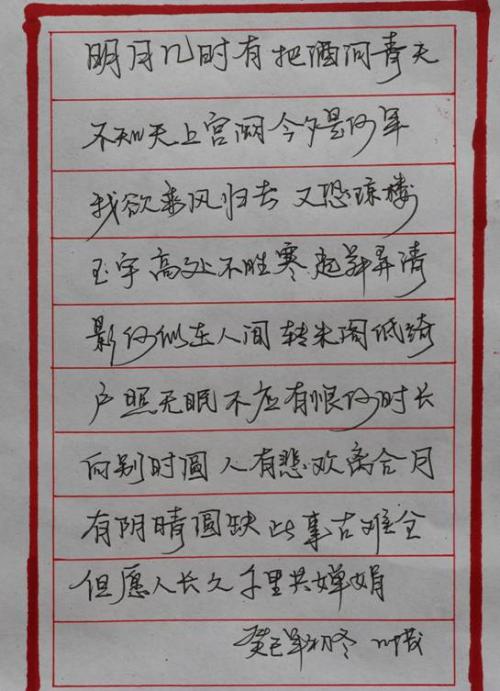 明月几时有把酒问青天
不知天上宫阙今夕是何年
我欲乘风归去又恐琼楼
玉宇高处不胜寒起舞弄清
影何似在人间转朱阁低绮
户照无眠不应有恨何时长
向别时圆人有悲欢离合月
有阴晴圆缺此事古难全
但愿人长久千里共婵娟
癸巳年初冬